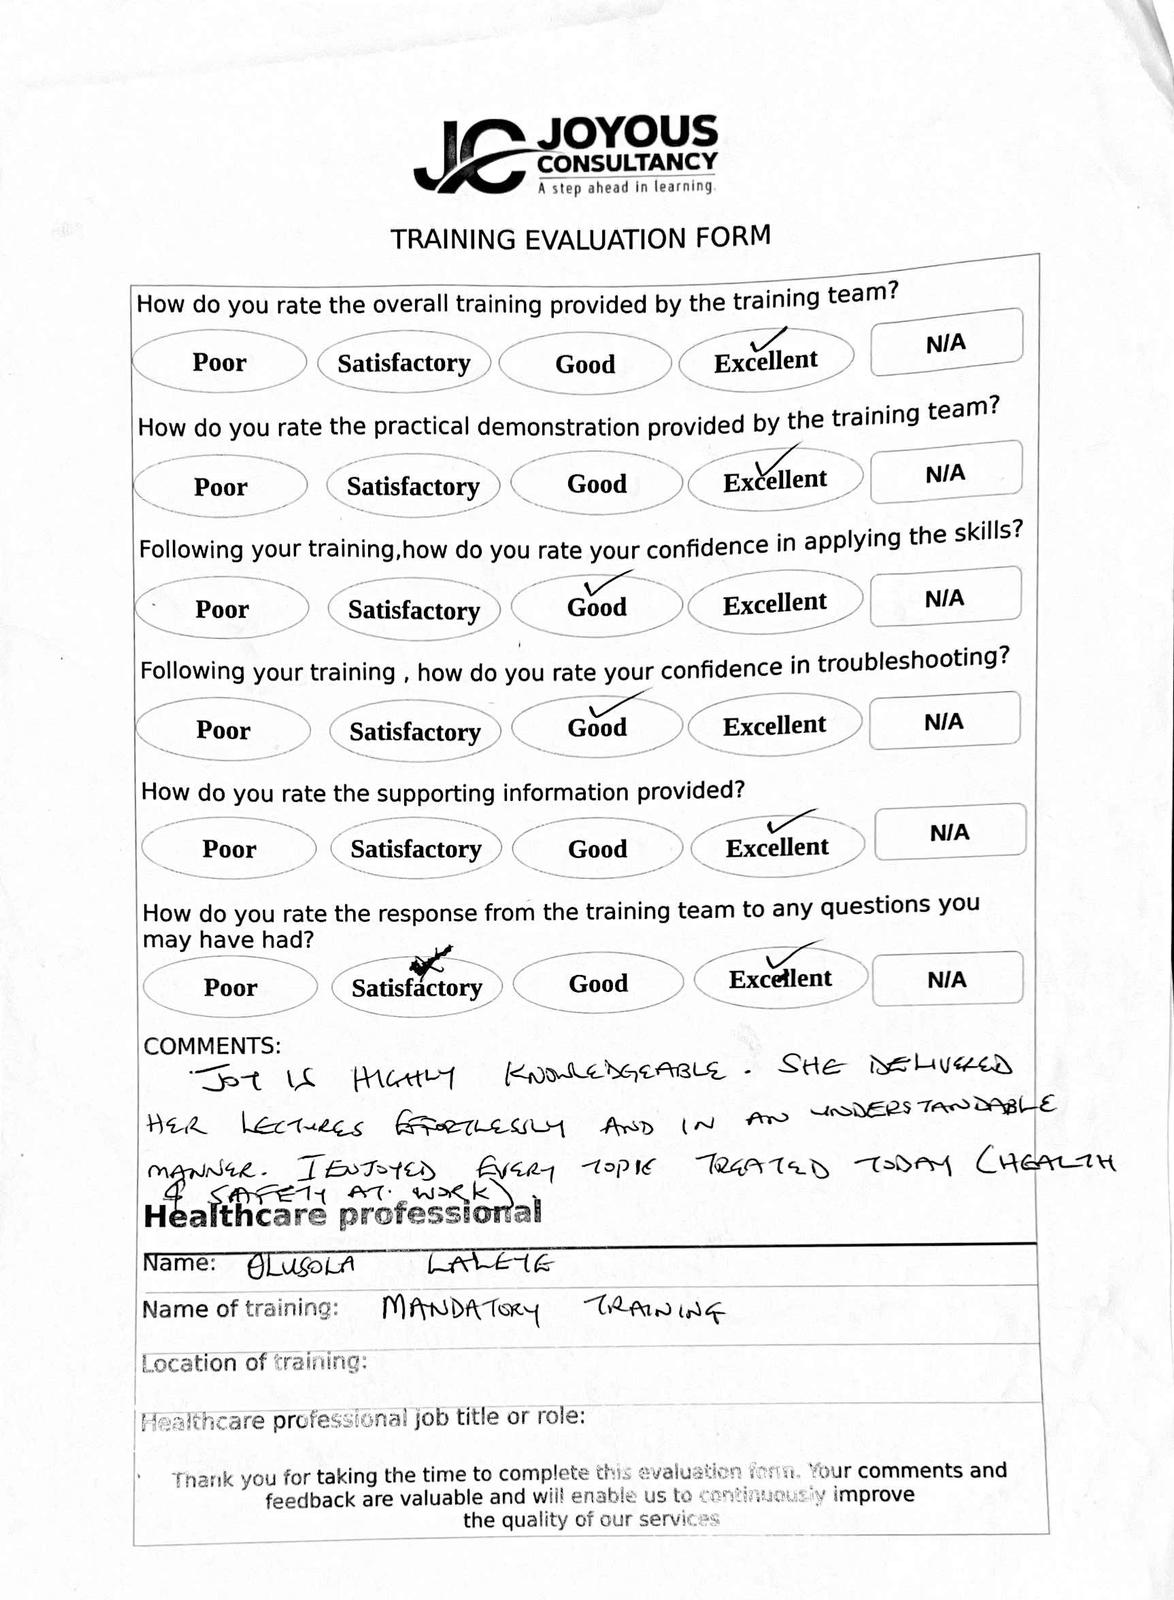 JC JOYOUS
CONSULTANCY
A step ahead in learning.
TRAINING EVALUATION FORM
How do you rate the overall training provided by the training team?
Poor Satisfactory Good Excellent N/A
How do you rate the practical demonstration provided by the training team?
Poor Satisfactory Good Excellent N/A
Following your training,how do you rate your confidence in applying the skills?
Poor Satisfactory Good Excellent N/A
Following your training , how do you rate your confidence in troubleshooting?
Poor Satisfactory Good Excellent N/A
How do you rate the supporting information provided?
Poor Satisfactory Good Excellent N/A
How do you rate the response from the training team to any questions you
may have had?
Poor Satisfactory Good Excellent N/A
COMMENTS:
JOY IS HIGHLY KNOWLEDGEABLE. SHE DELIVERED
HER LECTURES EFFORTLESSLY AND IN AN UNDERSTANDABLE
MANNER. I ENJOYED EVERY TOPIC TREATED TODAY (HEALTH
& SAFETY AT WORK).
Healthcare professional
Name: OLUSOLA LALEYE
Name of training: MANDATORY TRAINING
Location of training:
Healthcare professional job title or role:
Thank you for taking the time to complete this evaluation form. Your comments and
feedback are valuable and will enable us to continuously improve
the quality of our services